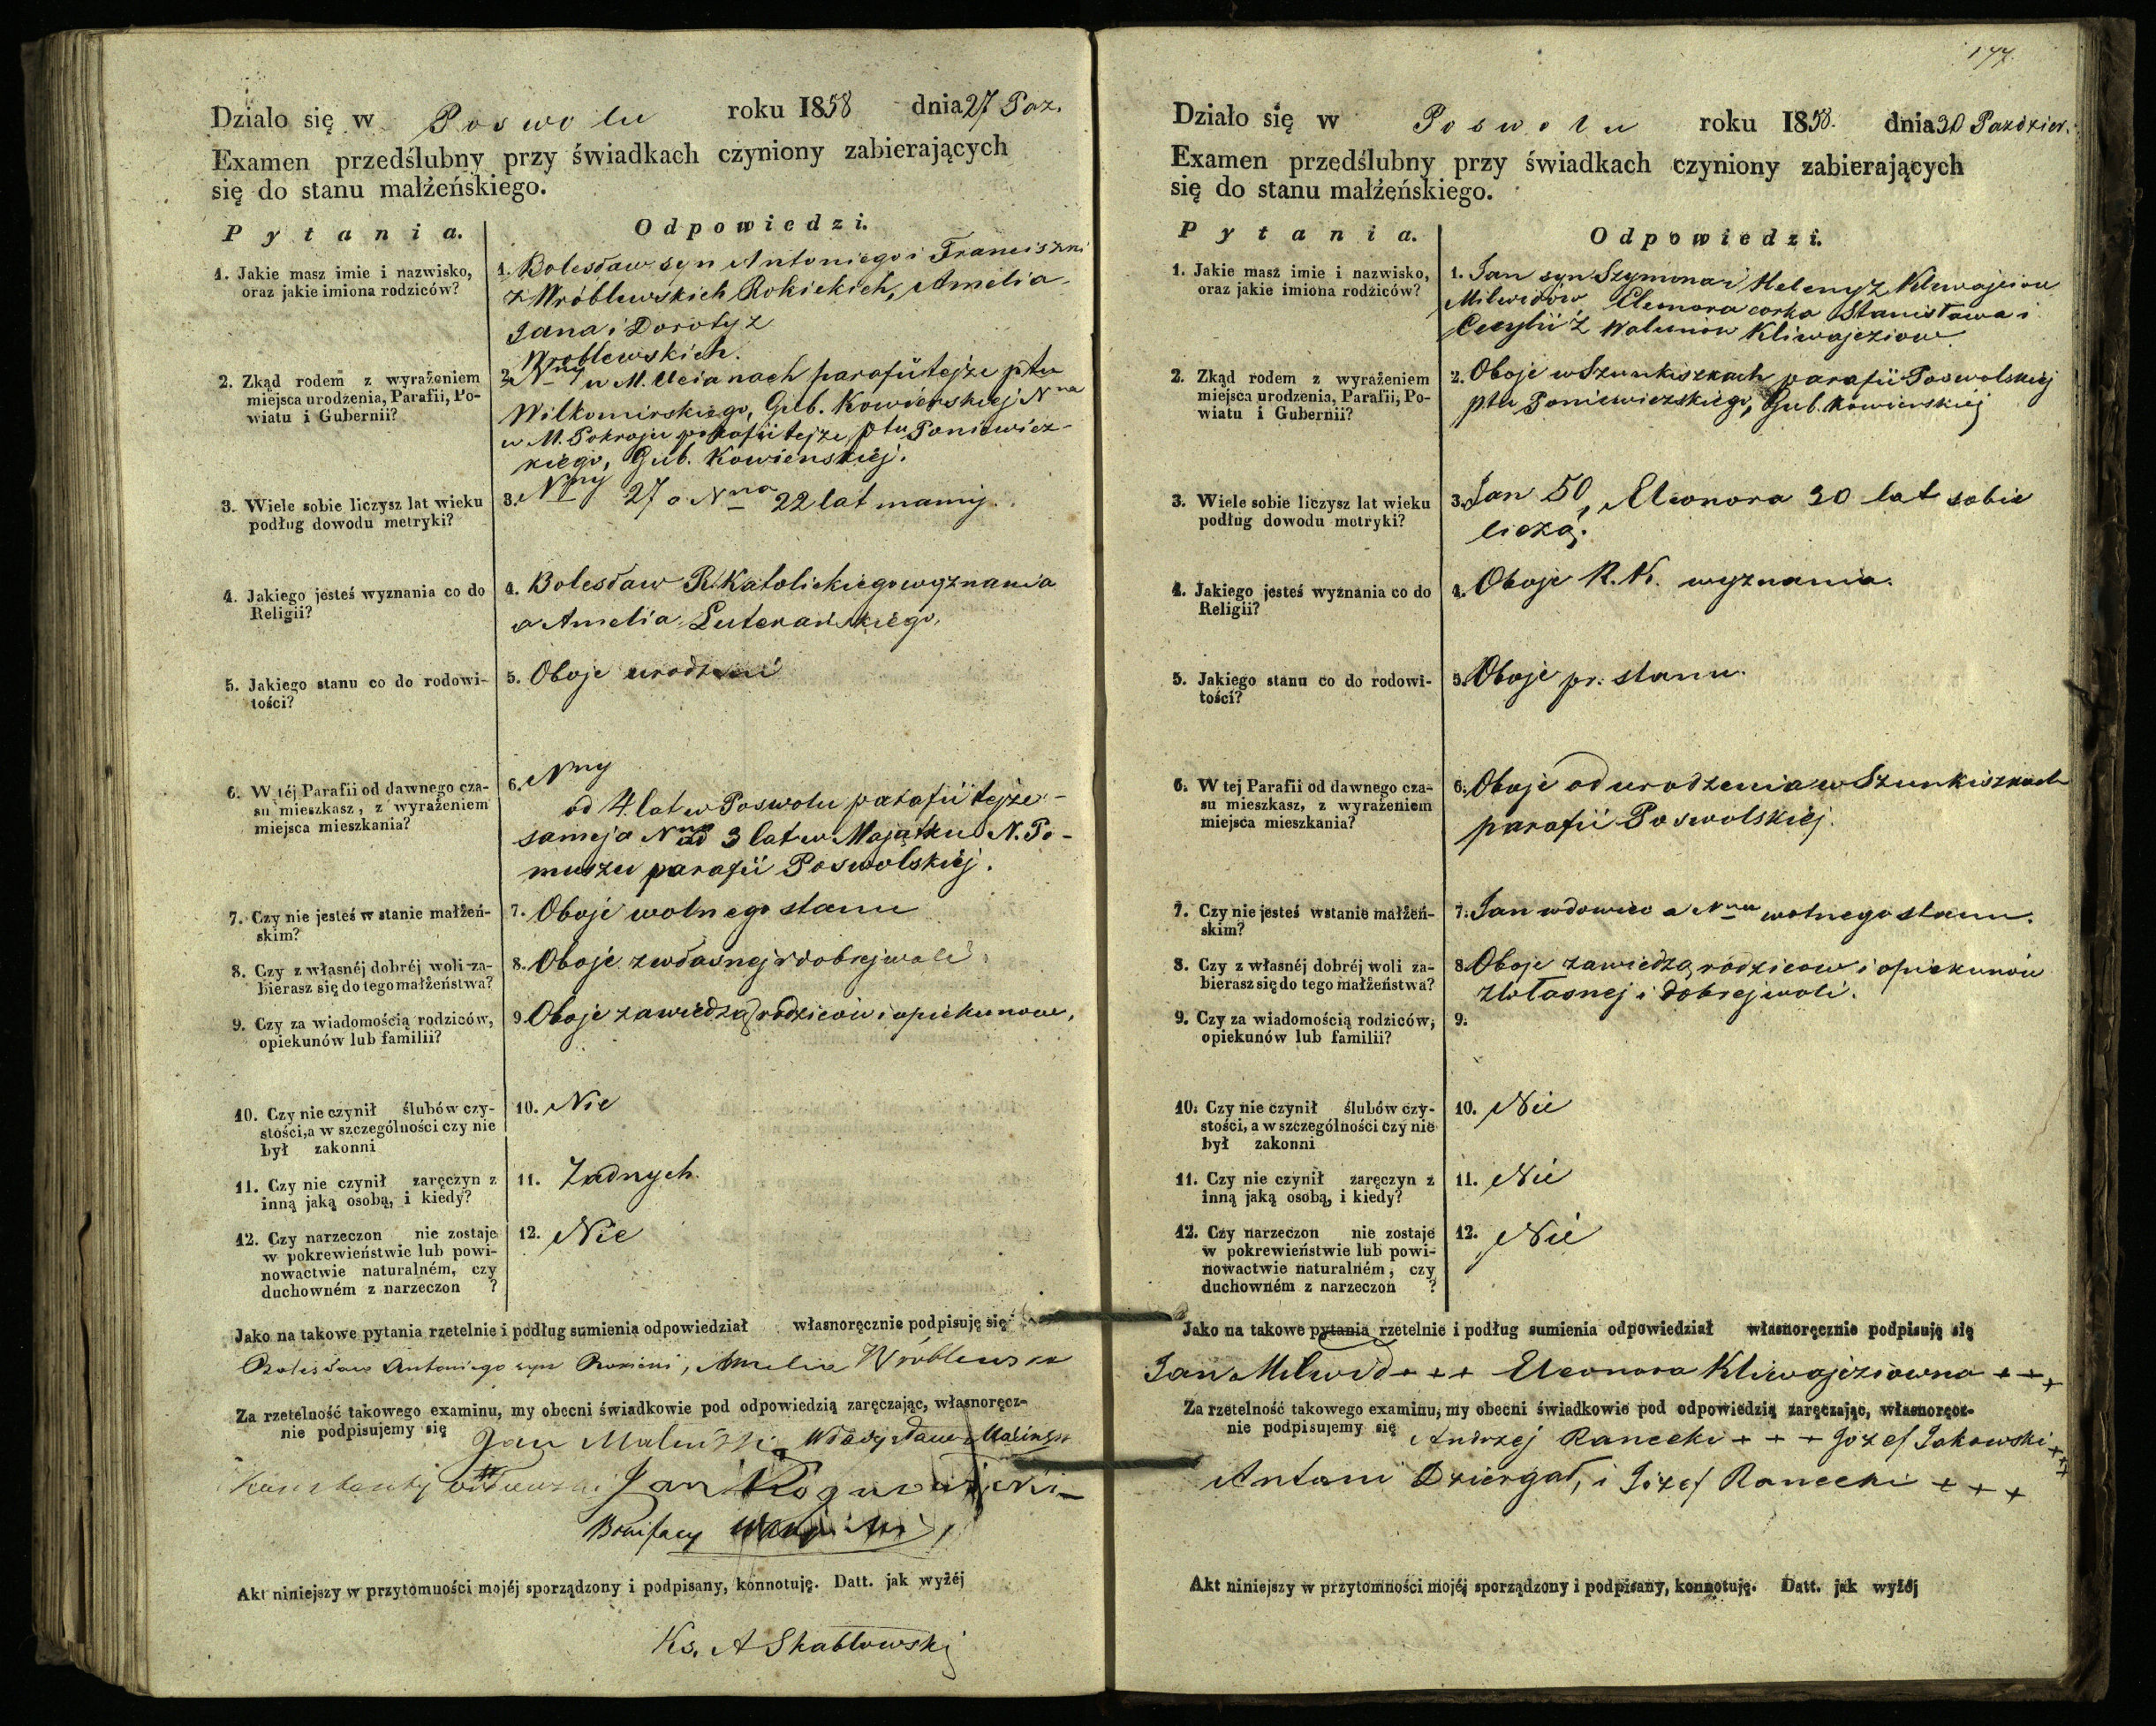 Działo się w Poswolu roku 1858 dnia 27 Paz.
Examen przedślubny przy świadkach czyniony zabierających
się do stanu małżeńskiego.
Pytania.
Odpowiedzi.
1. Jakie masz imie i nazwisko,
oraz jakie imiona rodziców?
1. Bolesław syn Antoniego i Franciszki
z Wróblewskich Rokickich, Amelia
Jana i Doroty z
Wroblewskich.
2. Zkąd rodem z wyrażeniem
miejsca urodzenia, Parafii, Po-
wiatu i Gubernii?
2. Nny w M. Ucianach parafii tejże ptu
Wiłkomirskiego, Gub. Kowieńskiej Nna
w M. Pokroju parafii tejże, ptu Poniewiez-
kiego, Gub. Kowieńskiej.
3. Wiele sobie liczysz lat wieku
podług dowodu metryki?
3. Nny 27 a Nna 22 lat mamy.
4. Jakiego jesteś wyznania co do
Religii?
4. Bolesław R. Katolickiego wyznania
a Amelia Luterańskiego.
5. Jakiego stanu co do rodowi-
tości?
5. Oboje urodzeni
6. W téj Parafii od dawnego cza-
su mieszkasz, z wyrażeniem
miejsca mieszkania?
6. Nny
od 4 lat w Poswolu parafii tejże
samej a Nna od 3 lat w Majątku N. Po-
muszu parafii Poswolskiéj.
7. Czy nie jesteś w stanie małżeń-
skim?
7. Oboje wolnego stanu
8. Czy z własnéj dobréj woli za-
bierasz się do tego małżeństwa?
8. Oboje z własnej i dobrej woli
9. Czy za wiadomością rodziców,
opiekunów lub familii?
9. Oboje za wiedzą rodzicow i opiekunow,
10. Czy nie czynił ślubów czy-
stości, a w szczególności czy nie
był zakonni
10. Nie
11. Czy nie czynił zaręczyn z
inną jaką osobą, i kiedy?
11. Żadnych.
12. Czy narzeczon nie zostaje
w pokrewieństwie lub powi-
nowactwie naturalném, czy
duchowném z narzeczon ?
12. Nie
Jako na takowe pytania rzetelnie i podług sumienia odpowiedział własnoręcznie podpisuję się
Bolesław Antoniego syn Rokicki, Amelia Wróblewska
Za rzetelność takowego examinu, my obecni świadkowie pod odpowiedzią zaręczając, własnoręcz-
nie podpisujemy się Jan Władysław
Konstanty Jan
Bonifacy
Akt niniejszy w przytomności mojéj sporządzony i podpisany, konnotuję. Datt. jak wyżéj
Ks. A Skabłowski
177.
Działo się w Poswolu roku 1858. dnia 30 Paździer.
Examen przedślubny przy świadkach czyniony zabierających
się do stanu małżeńskiego.
Pytania.
Odpowiedzi.
1. Jakie masz imie i nazwisko,
oraz jakie imiona rodziców?
1. Jan syn Szymona i Heleny z Klewajciow
Milwidów Eleonora corka Stanisława i
Cecylii z Walunow Kliwajcziow.
2. Zkąd rodem z wyrażeniem
miejsca urodzenia, Parafii, Po-
wiatu i Gubernii?
2. Oboje w Szunkiszkach parafii Poswolskiéj
ptu Poniewiezskiego, Gub. Kowienskiej
3. Wiele sobie liczysz lat wieku
podług dowodu metryki?
3. Jan 50, Eleonora 30 lat sobie
liczą.
4. Jakiego jesteś wyznania co do
Religii?
4. Oboje R. K. wyznania.
5. Jakiego stanu co do rodowi-
tości?
5. Oboje pr. stanu.
6. W tej Parafii od dawnego cza-
su mieszkasz, z wyrażeniem
miejsca mieszkania?
6. Oboje od urodzenia w Szunkiszkach
parafii Poswolskiéj.
7. Czy nie jesteś wstanie małżeń-
skim?
7. Jan wdowiec a Nna wolnego stanu.
8. Czy z własnéj dobréj woli za-
bierasz się do tego małżeństwa?
8. Oboje za wiedzą rodzicow i opiekunów
z własnej i dobrej woli.
9. Czy za wiadomością rodziców,
opiekunów lub familii?
9.
10. Czy nie czynił ślubów czy-
stości, a w szczególności czy nie
był zakonni
10. Nie
11. Czy nie czynił zaręczyn z
inną jaką osobą, i kiedy?
11. Nie
12. Czy narzeczon nie zostaje
w pokrewieństwie lub powi-
nowactwie naturalném, czy
duchowném z narzeczon ?
12. Nie
Jako na takowe pytania rzetelnie i podług sumienia odpowiedział własnoręcznie podpisuję się
Jan Milwid + + + Eleonora Kliwajcziowna + + +
Za rzetelność takowego examinu, my obecni świadkowie pod odpowiedzią zaręczając, własnoręcz-
nie podpisujemy się Andrzej Ranecki + + + Józef Jakowski + + +
Antoni Dziergał, i Józef Ranecki + + +
Akt niniejszy w przytomności mojéj sporządzony i podpisany, konnotuję. Datt. jak wyżéj